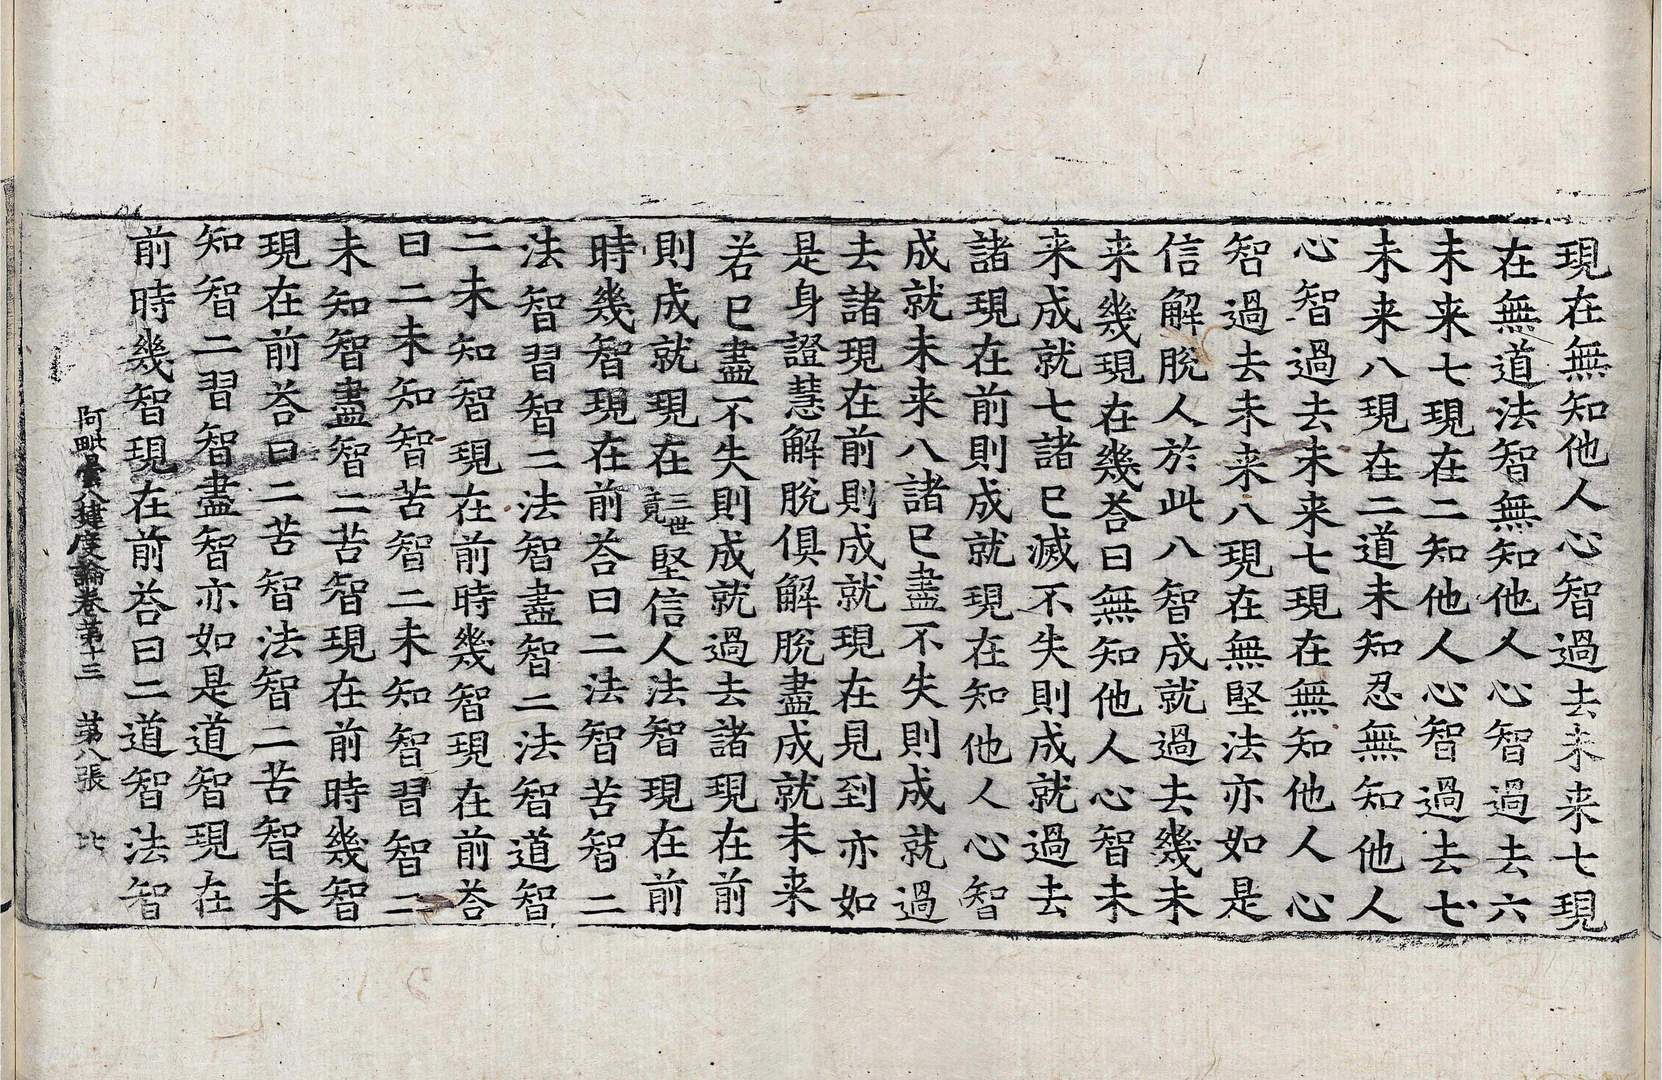 現在無知他人心智過去未来七現
在無道法智無知他人心智過去六
未来七現在二知他人心智過去七
未来八現在二道未知忍無知他人
心智過去未来七現在無知他人心
智過去未来八現在無堅法亦如是
信解脫人於此八智成就過去幾未
来幾現在幾荅曰無知他人心智未
来成就七諸已滅不失則成就過去
諸現在前則成就現在知他人心智
成就未来八諸已盡不失則成就過
去諸現在前則成就現在見到亦如
是身證慧解脫俱解脫盡成就未来
若已盡不失則成就過去諸現在前
則成就現在三世竟堅信人法智現在前
時幾智現在前荅曰二法智苦智二
法智習智二法智盡智二法智道智
二未知智現在前時幾智現在前荅
曰二未知智苦智二未知智習智二
未知智盡智二苦智現在前時幾智
現在前荅曰二苦智法智二苦智未
知智二習智盡智亦如是道智現在
前時幾智現在前荅曰二道智法智
阿毗曇八揵度論卷第十三 第八張 比